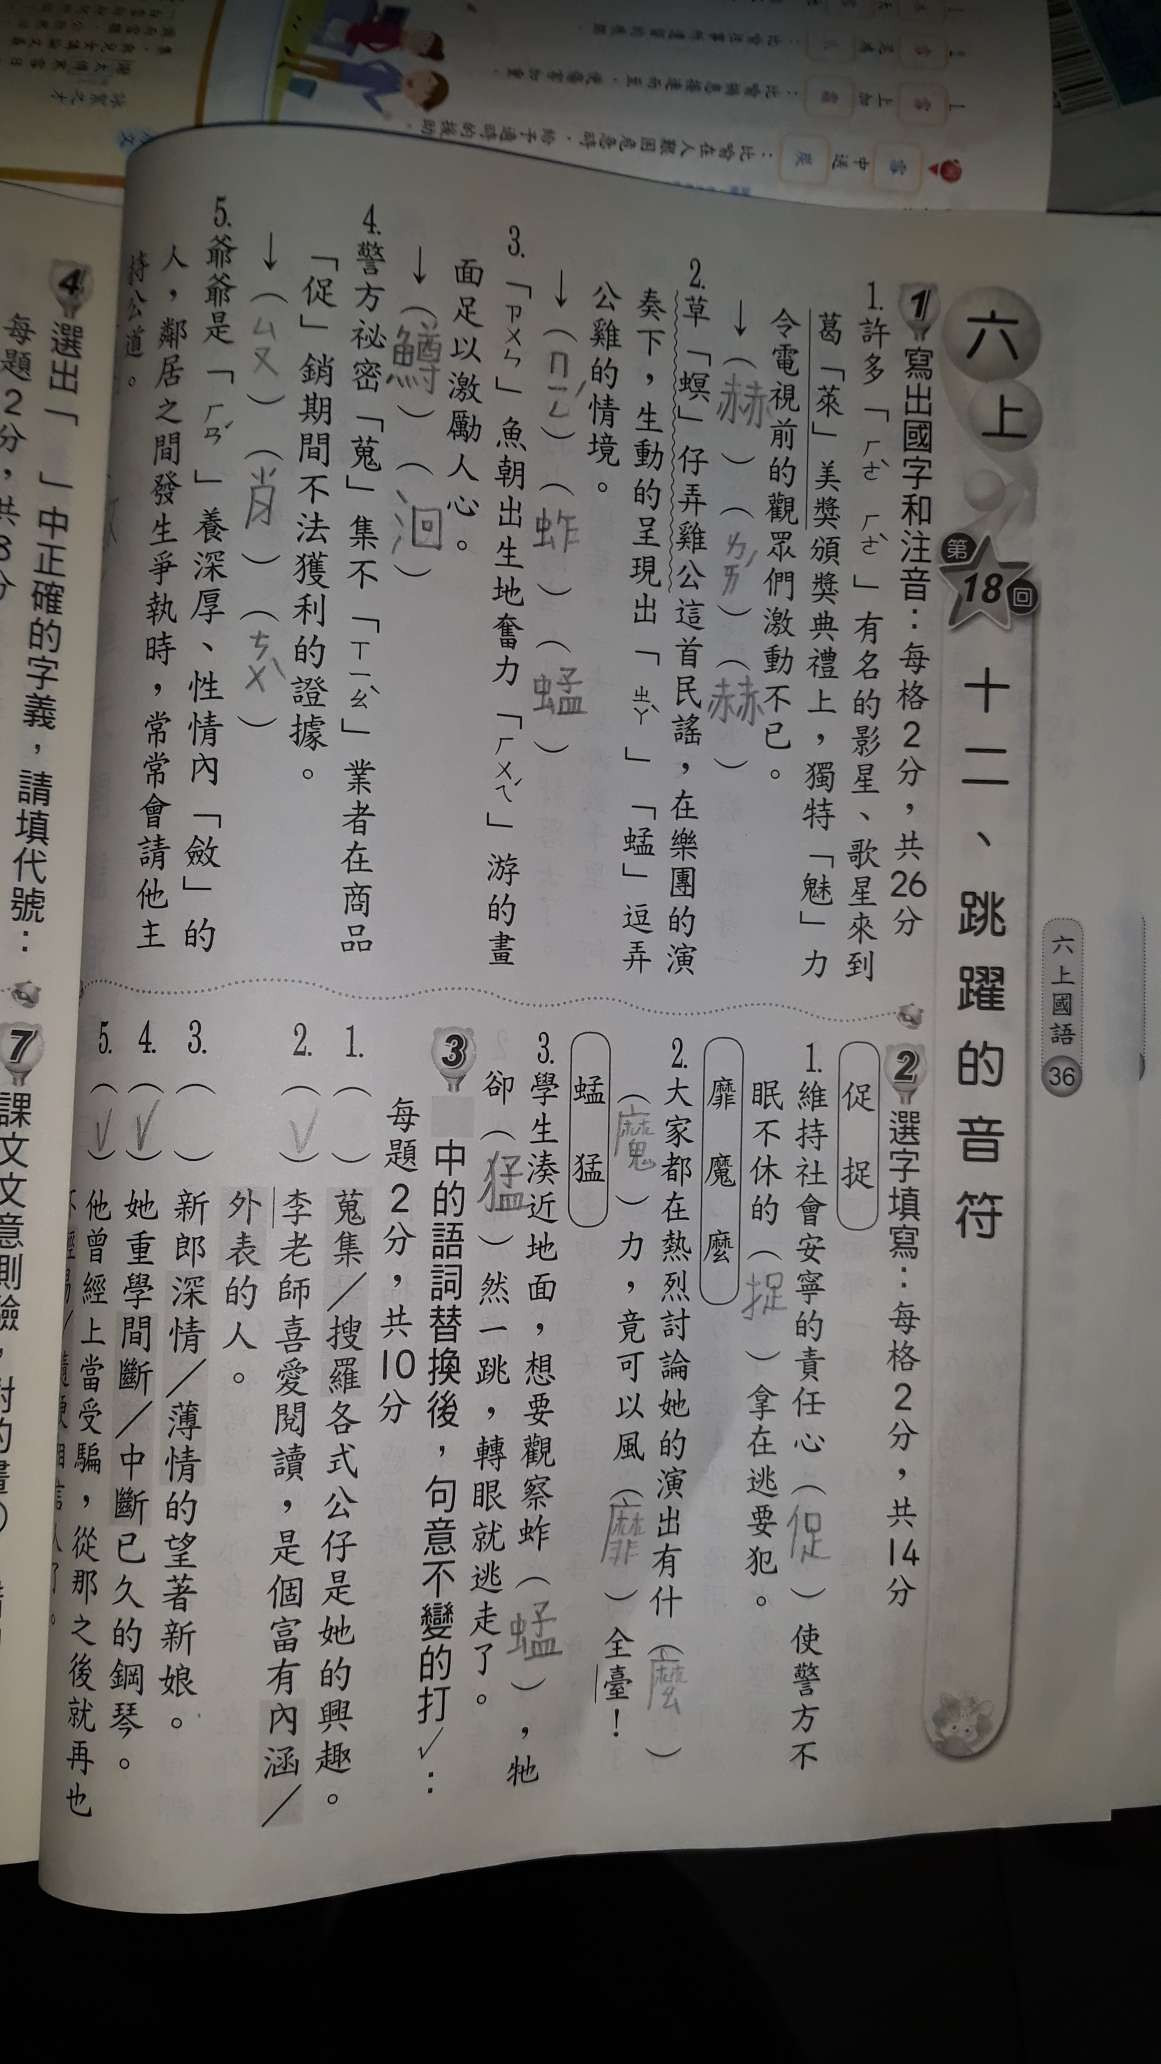 六上國語 36
六上 第18回 十二、跳躍的音符
1 寫出國字和注音：每格2分，共26分
1. 許多「ㄏㄜˋ ㄏㄜˋ」有名的影星、歌星來到
葛「萊」美獎頒獎典禮上，獨特「魅」力
令電視前的觀眾們激動不已。
↓（赫）（ㄌㄞˊ）（赫）
2. 草「螟」仔弄雞公這首民謠，在樂團的演
奏下，生動的呈現出「ㄓㄚˋ」「蜢」逗弄
公雞的情境。
↓（ㄇㄧㄥˊ）（蚱）（蜢）
3. 「ㄗㄨㄣ」魚朝出生地奮力「ㄏㄨㄟˊ」游的畫
面足以激勵人心。
↓（鱒）（洄）
4. 警方祕密「蒐」集不「ㄒㄧㄠˋ」業者在商品
「促」銷期間不法獲利的證據。
↓（ㄙㄡ）（肖）（ㄘㄨˋ）
5. 爺爺是「ㄏㄢˊ」養深厚、性情內「斂」的
人，鄰居之間發生爭執時，常常會請他主
持公道。
2 選字填寫：每格2分，共14分
促 捉
1. 維持社會安寧的責任心（促）使警方不
眠不休的（捉）拿在逃要犯。
靡 魔 麼
2. 大家都在熱烈討論她的演出有什（麼）
（魔）力，竟可以風（靡）全臺！
蜢 猛
3. 學生湊近地面，想要觀察蚱（蜢），牠
卻（猛）然一跳，轉眼就逃走了。
3 中的語詞替換後，句意不變的打✓：
每題2分，共10分
1. （ ）蒐集／搜羅各式公仔是她的興趣。
2. （✓）李老師喜愛閱讀，是個富有內涵／
外表的人。
3. （ ）新郎深情／薄情的望著新娘。
4. （✓）她重學間斷／中斷已久的鋼琴。
5. （✓）他曾經上當受騙，從那之後就再也
4 選出「 」中正確的字義，請填代號：
每題2分，共8分
7 課文文意測驗